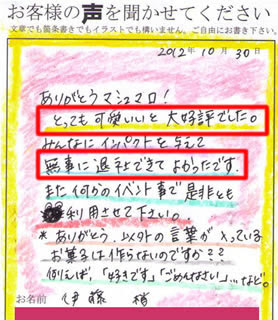 お客様の声を聞かせてください
文章でも箇条書きでもイラストでも構いません。ご自由にお書き下さい。
2012年10月30日
ありがとうマシュマロ!
とっても可愛いいと大好評でした。
みんなにインパクトを与えて
無事に退社できてよかったです。
また何かのイベント事で是非とも
利用させて下さい。
*ありがとう、以外の言葉が入っている
お菓子は作らないのですか??
例えば、「好きです」「ごめんなさい」…など。
お名前 伊藤